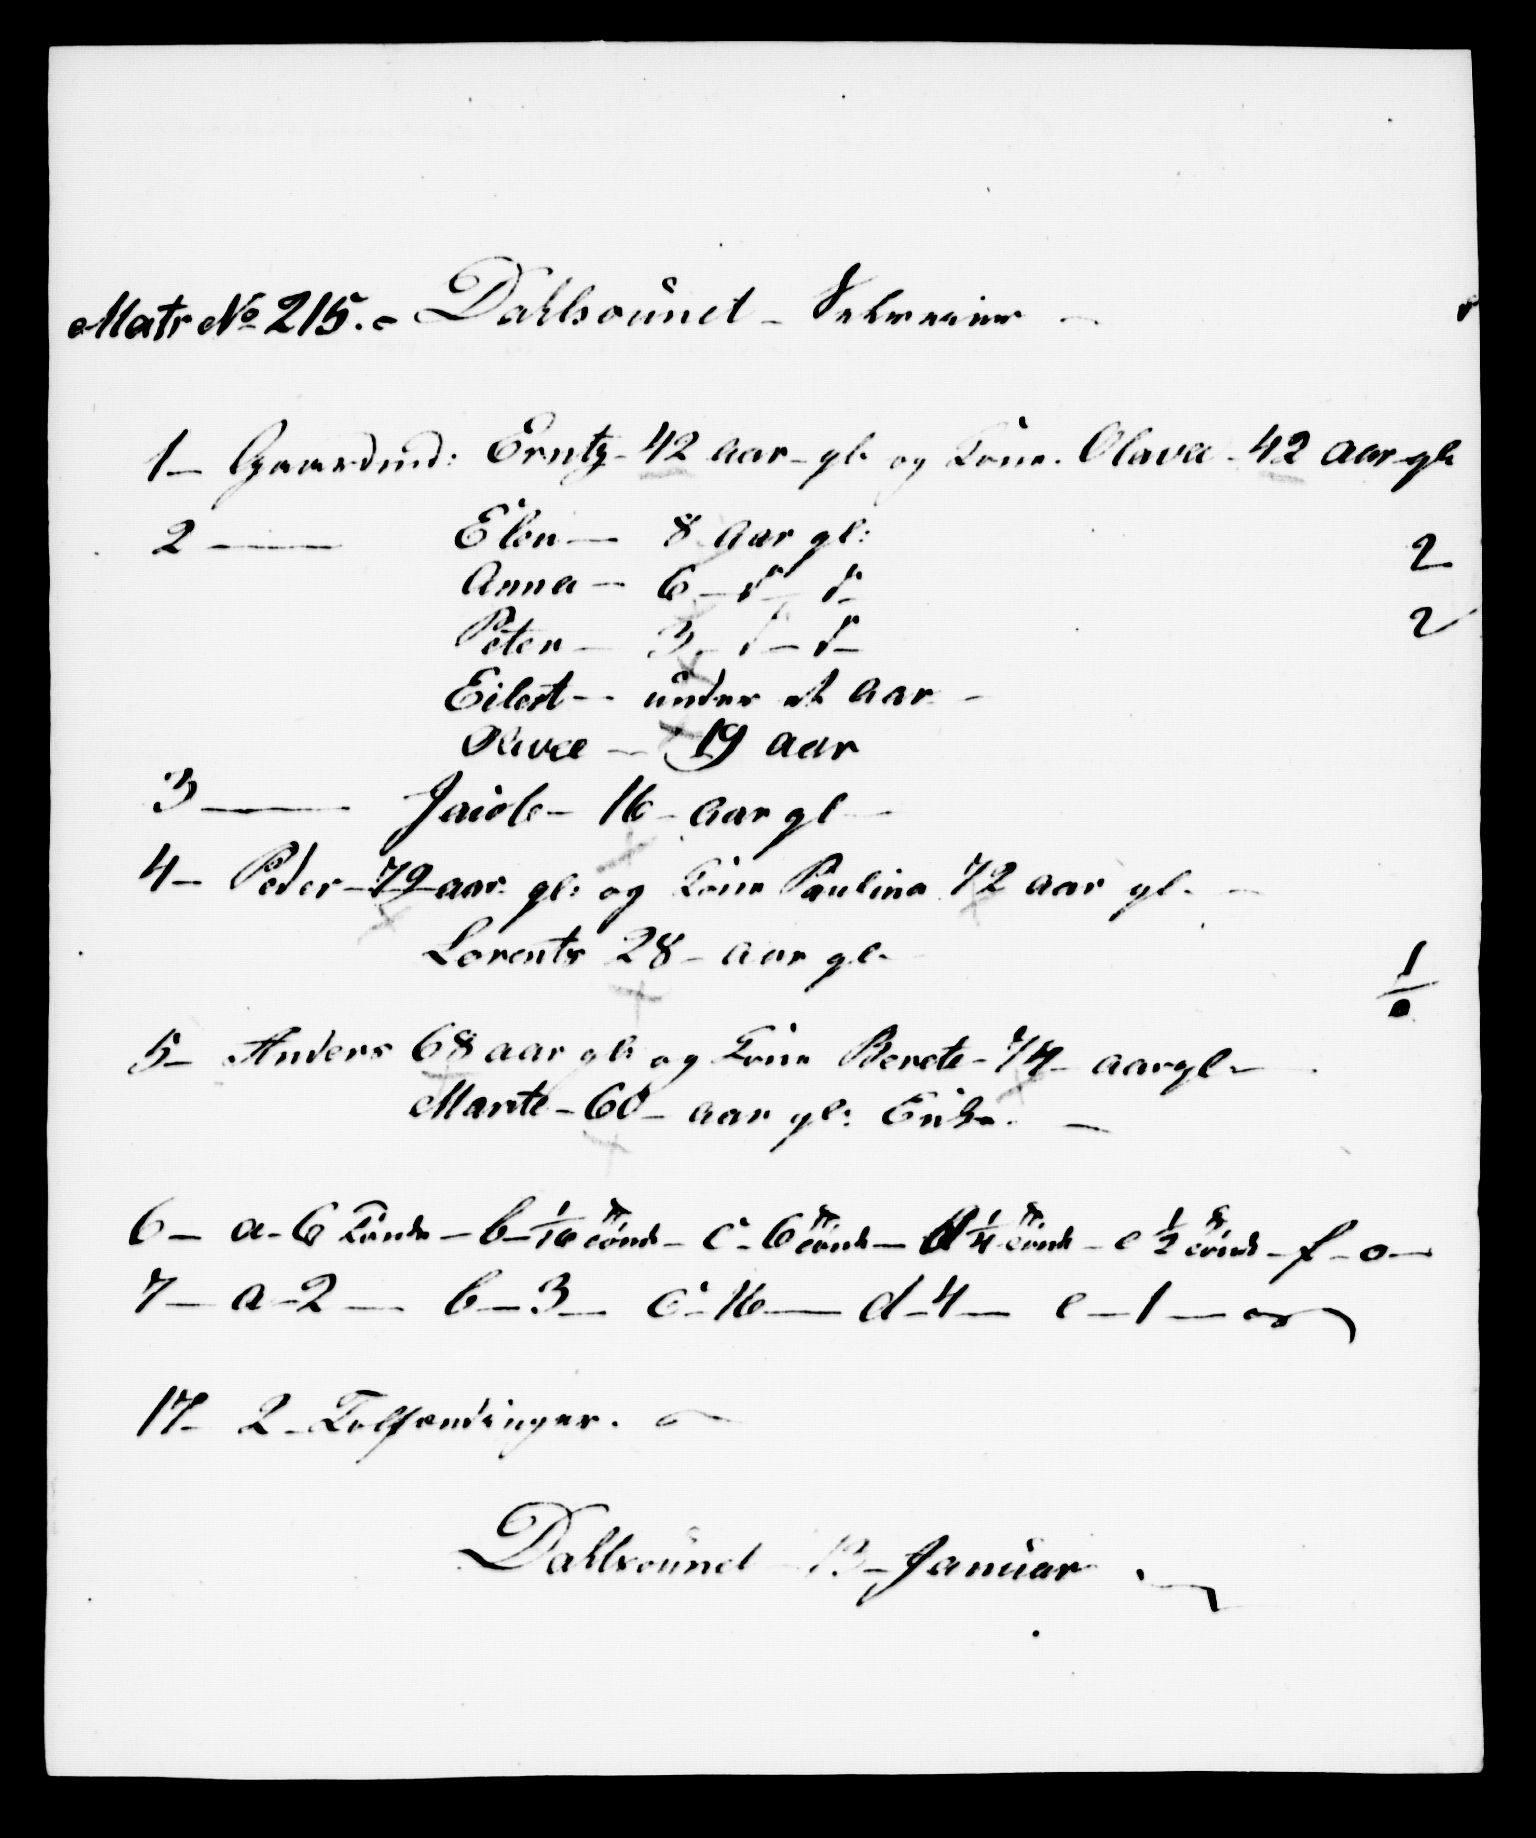 Matr No 215. - Dahlsound -
1 - Gaardmd: Erntz - 42 aar - gl. og Kone. Olava - 42 aar gl.
2 — Elen — 8 Aar gl: 2
Anna — 6 - d° d°
Peter — 3 - d° - d° 2
Eilert — under et Aar -
Olava — 19 aar
3 — Jacob - 16 - Aar gl -
4 - Peder - 79 aar gl: og Kone Paulina 72 aar gl. -
Lorents 28 - aar gl.
1/0
5 - Anders 68 aar gl: og Kone Berete - 74 - aar gl. -
Marite - 60 - aar gl: Enke. -
6 - a - 6 Tønde - b - 1/16 Tønde - c - 6 Tønde - d 1/4 Tønde - e 1/2 Tønde - f - o -
7 - a - 2 — b - 3 - c - 16 — d - 4 - e - 1 -
17 - 2 -
Dahlsound - 13 - Januar.